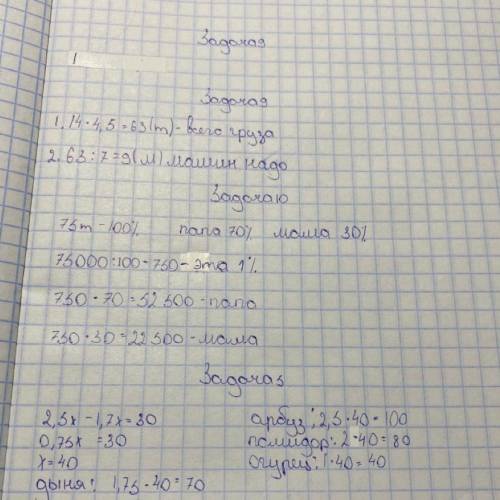 Задача9
1
Задача9
1. 14 · 4,5 = 63 (т) - всего груза
2. 63 : 7 = 9 (м) машин надо
Задача10
75т - 100% папа 70% мама 30%
75000:100 = 750 - эта 1%
750 · 70 = 52 500 - папа
750 · 30 = 22 500 - мама
Задача5
2,5x - 1,7x = 30
0,75x = 30
x = 40
арбуз: 2,5 · 40 = 100
помидор: 2 · 40 = 80
огурец: 1 · 40 = 40
дыня: 1,75 · 40 = 70